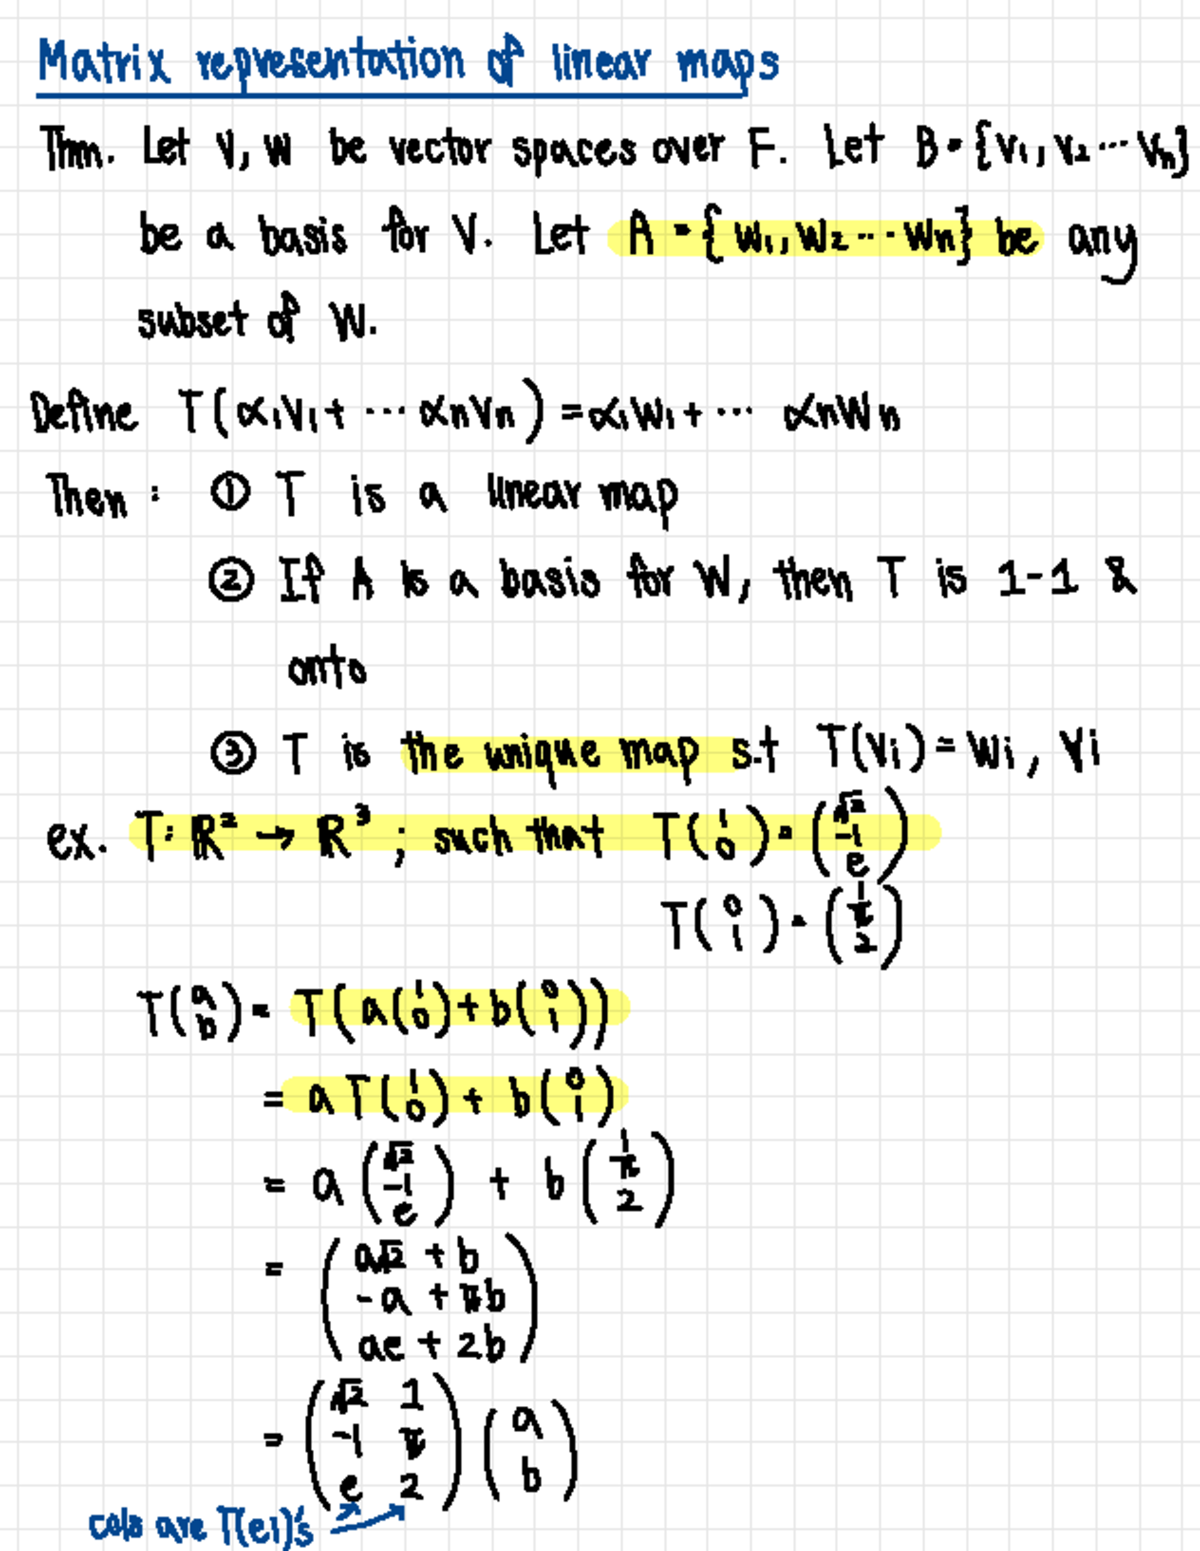 Matrix representation of linear maps
Thm. Let V, W be vector spaces over F. Let B = {v₁, v₂ ... vₙ}
be a basis for V. Let A = {w₁, w₂ ... wₙ} be any
subset of W.
Define T(α₁v₁ + ... αₙvₙ) = α₁w₁ + ... αₙwₙ
Then : ① T is a linear map
② If A is a basis for W, then T is 1-1 &
onto
③ T is the unique map s.t T(vᵢ) = wᵢ, ∀i
ex. T: ℝ² → ℝ³ ; such that T(1 0) = (√2 -1 e)
T(0 1) = (1 π 2)
T(a b) = T(a(1 0) + b(0 1))
= a T(1 0) + b(0 1)
= a (√2 -1 e) + b (1 π 2)
= (a√2 + b
-a + πb
ae + 2b)
= (√2 1
-1 π
e 2) (a b)
cols are T(ei)'s